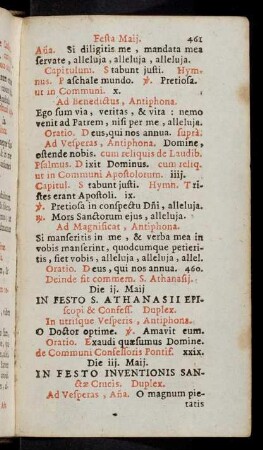 Festa Maij. 461
Aña. Si diligitis me, mandata mea
servate, alleluja, alleluja, alleluja.
Capitulum. Stabunt justi. Hym-
nus. Paschale mundo. ℣. Pretiosa.
ut in Communi. x.
Ad Benedictus, Antiphona.
Ego sum via, veritas, & vita: nemo
venit ad Patrem, nisi per me, alleluja.
Oratio. Deus, qui nos annua. suprà.
Ad Vesperas, Antiphona. Domine,
ostende nobis. cum reliquis de Laudib.
Psalmus. Dixit Dominus. cum reliq.
ut in Communi Apostolorum. iiij.
Capitul. Stabunt justi. Hymn. Tri-
stes erant Apostoli. ix.
℣. Pretiosa in conspectu Dñi, alleluja.
℟. Mors Sanctorum ejus, alleluja.
Ad Magnificat, Antiphona.
Si manseritis in me, & verba mea in
vobis manserint, quodcumque petieri-
tis, fiet vobis, alleluja, alleluja, allel.
Oratio. Deus, qui nos annua. 460.
Deinde fit commem. S. Athanasij.
Die ij. Maij
IN FESTO S. ATHANASII EPI-
scopi & Confess. Duplex.
In utrisque Vesperis, Antiphona.
O Doctor optime. ℣. Amavit eum.
Oratio. Exaudi quæsumus Domine.
de Communi Confessoris Pontif. xxix.
Die iij. Maij.
IN FESTO INVENTIONIS SAN-
ctæ Crucis. Duplex.
Ad Vesperas, Aña. O magnum pie-
tatis